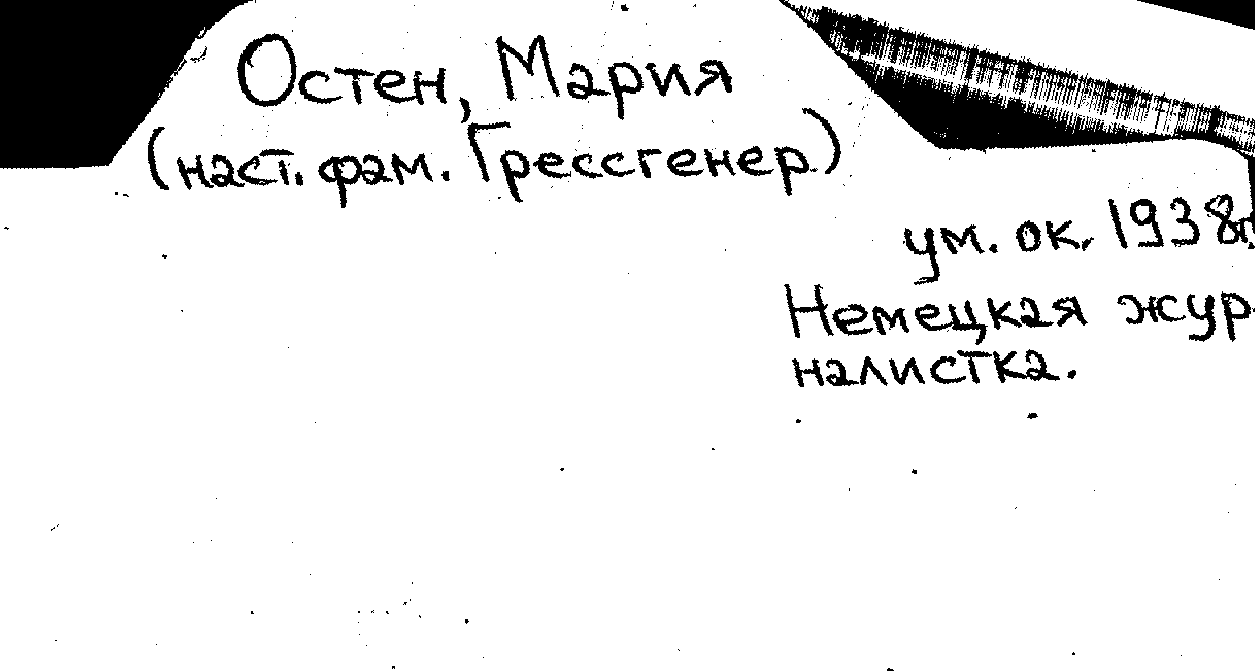 Остен, Мария
(наст. фам. Грессгенер)
ум. ок. 1938г.
Немецкая жур-
налистка.